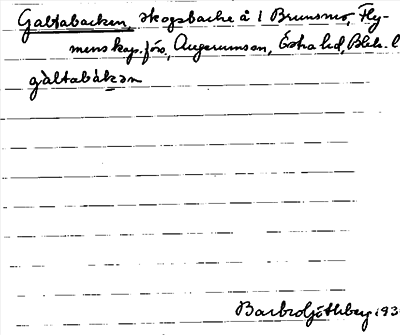 Galtabacken, skogsbacke å 1 Brunsmo, Fly-
menskap.förs, Augerumssn, Östra hd, Blek. l
gàltabàkən
Barbro Göthberg 193